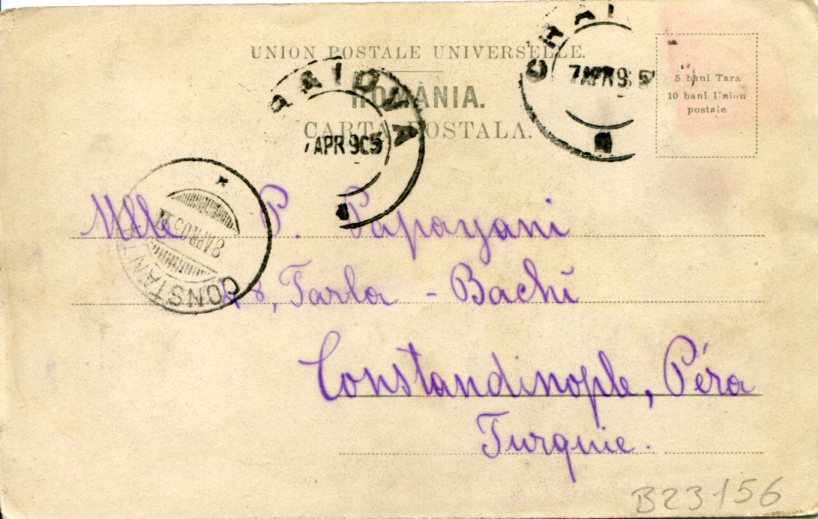 UNION POSTALE UNIVERSELLE.
ROMÂNIA.
CARTA POSTALA.
5 bani Tara
10 bani Union
postale
CRAI
7 APR 905
RAIOVA
7 APR 905
CONSTAN
8 APR 05
Mlle P. Papayani
8, Tarla - Bachi
Constandinople, Péra
Turquie.
B23156